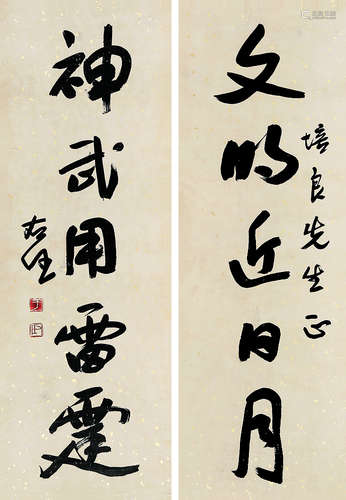 文明近日月
培良先生正
神武用雷霆
右任